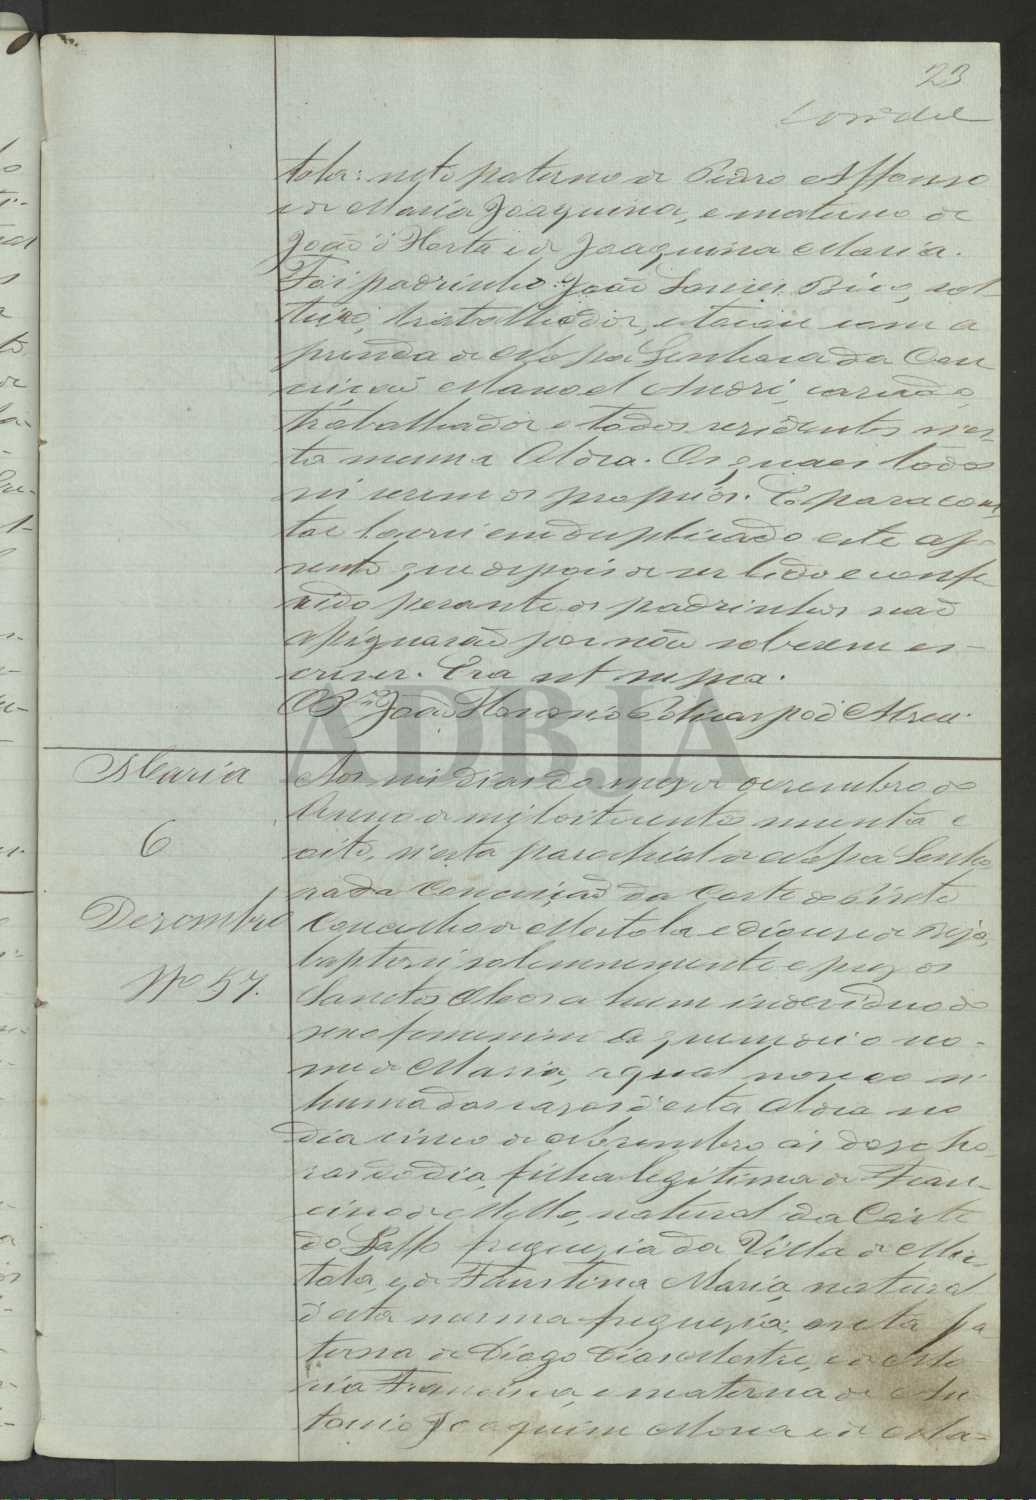 23
tola: neto paterno de Pedro Affonso
e de Maria Joaquina, e materno de
João d'Horta e de Joaquina Maria.
Foi padrinho: João Xavier Bico, sol
teiro, trabalhador, e tocou com a
prenda de Nossa Senhora da Con
ceição Manoel André, casado,
trabalhador e todos residentes nes
ta mesma Aldea. Os quaes todos
sei serem os proprios. E para cons
tar lavrei em duplicado este as
sento, que depois de ser lido e confe
rido perante os padrinhos não
assignarão por não saberem es-
crever. Era ut supra.
O Bdo João Honorio Policarpo d'Abreu.
Maria
6
Dezembro
No 57.
Aos seis dias do mez de dezembro do
Anno de mil oitocentos secenta e
oito, n'esta parochial de Nossa Senho
ra da Conceição da Corte do Pinto
Concelho de Mertola e diocese de Beja,
baptizei solemnemente e puz os
Sanctos Oleos a hum individuo do
sexo femenino a quem dei o no-
me de Maria, a qual nasceo n'
huma das cazas d'esta Aldea no
dia cinco de Novembro ás doze ho
ras do dia, filha legitima de Fran-
cisco de Mello, natural da Córte
do Gaffo freguezia da Villa de Mer-
tola, e de Faustina Maria natural
d'esta mesma freguezia; neta pa
terna de Diogo Dias Mestre, e de Ma
ria Francisca, e materna de An
tonio Joaquim Moria e de Ma-
ADBJA